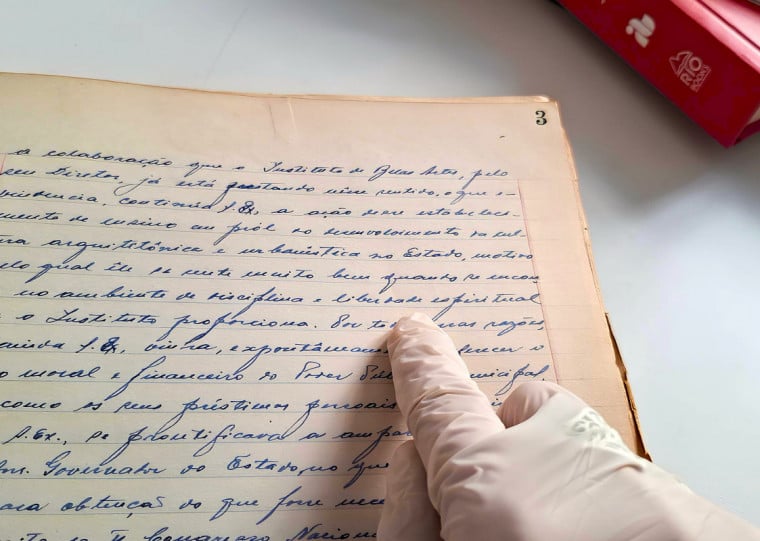 3
a colaboração que o Instituto de Belas Artes, pelo
seu Diretor, já está prestando nêsse sentido, o que e-
videncia, continúa S. Ex., a ação dêsse estabeleci-
mento de ensino em pról do desenvolvimento da cul-
tura arquitetônica e urbanística no Estado, motivo
pelo qual êle se sente muito bem quando se encon
no ambiente de disciplina e liberdade espiritual
e o Instituto proporciona. Por razões,
ainda S. Ex., viera, expontâneam
o moral e financeiro do Poder Municipal,
como os seus préstimos pessoais
S. Ex., se prontificava a ampa
Snr. Governador do Estado, no que
para obtenção do que fosse nece
II Congresso Nacional
RIO
BOOKS